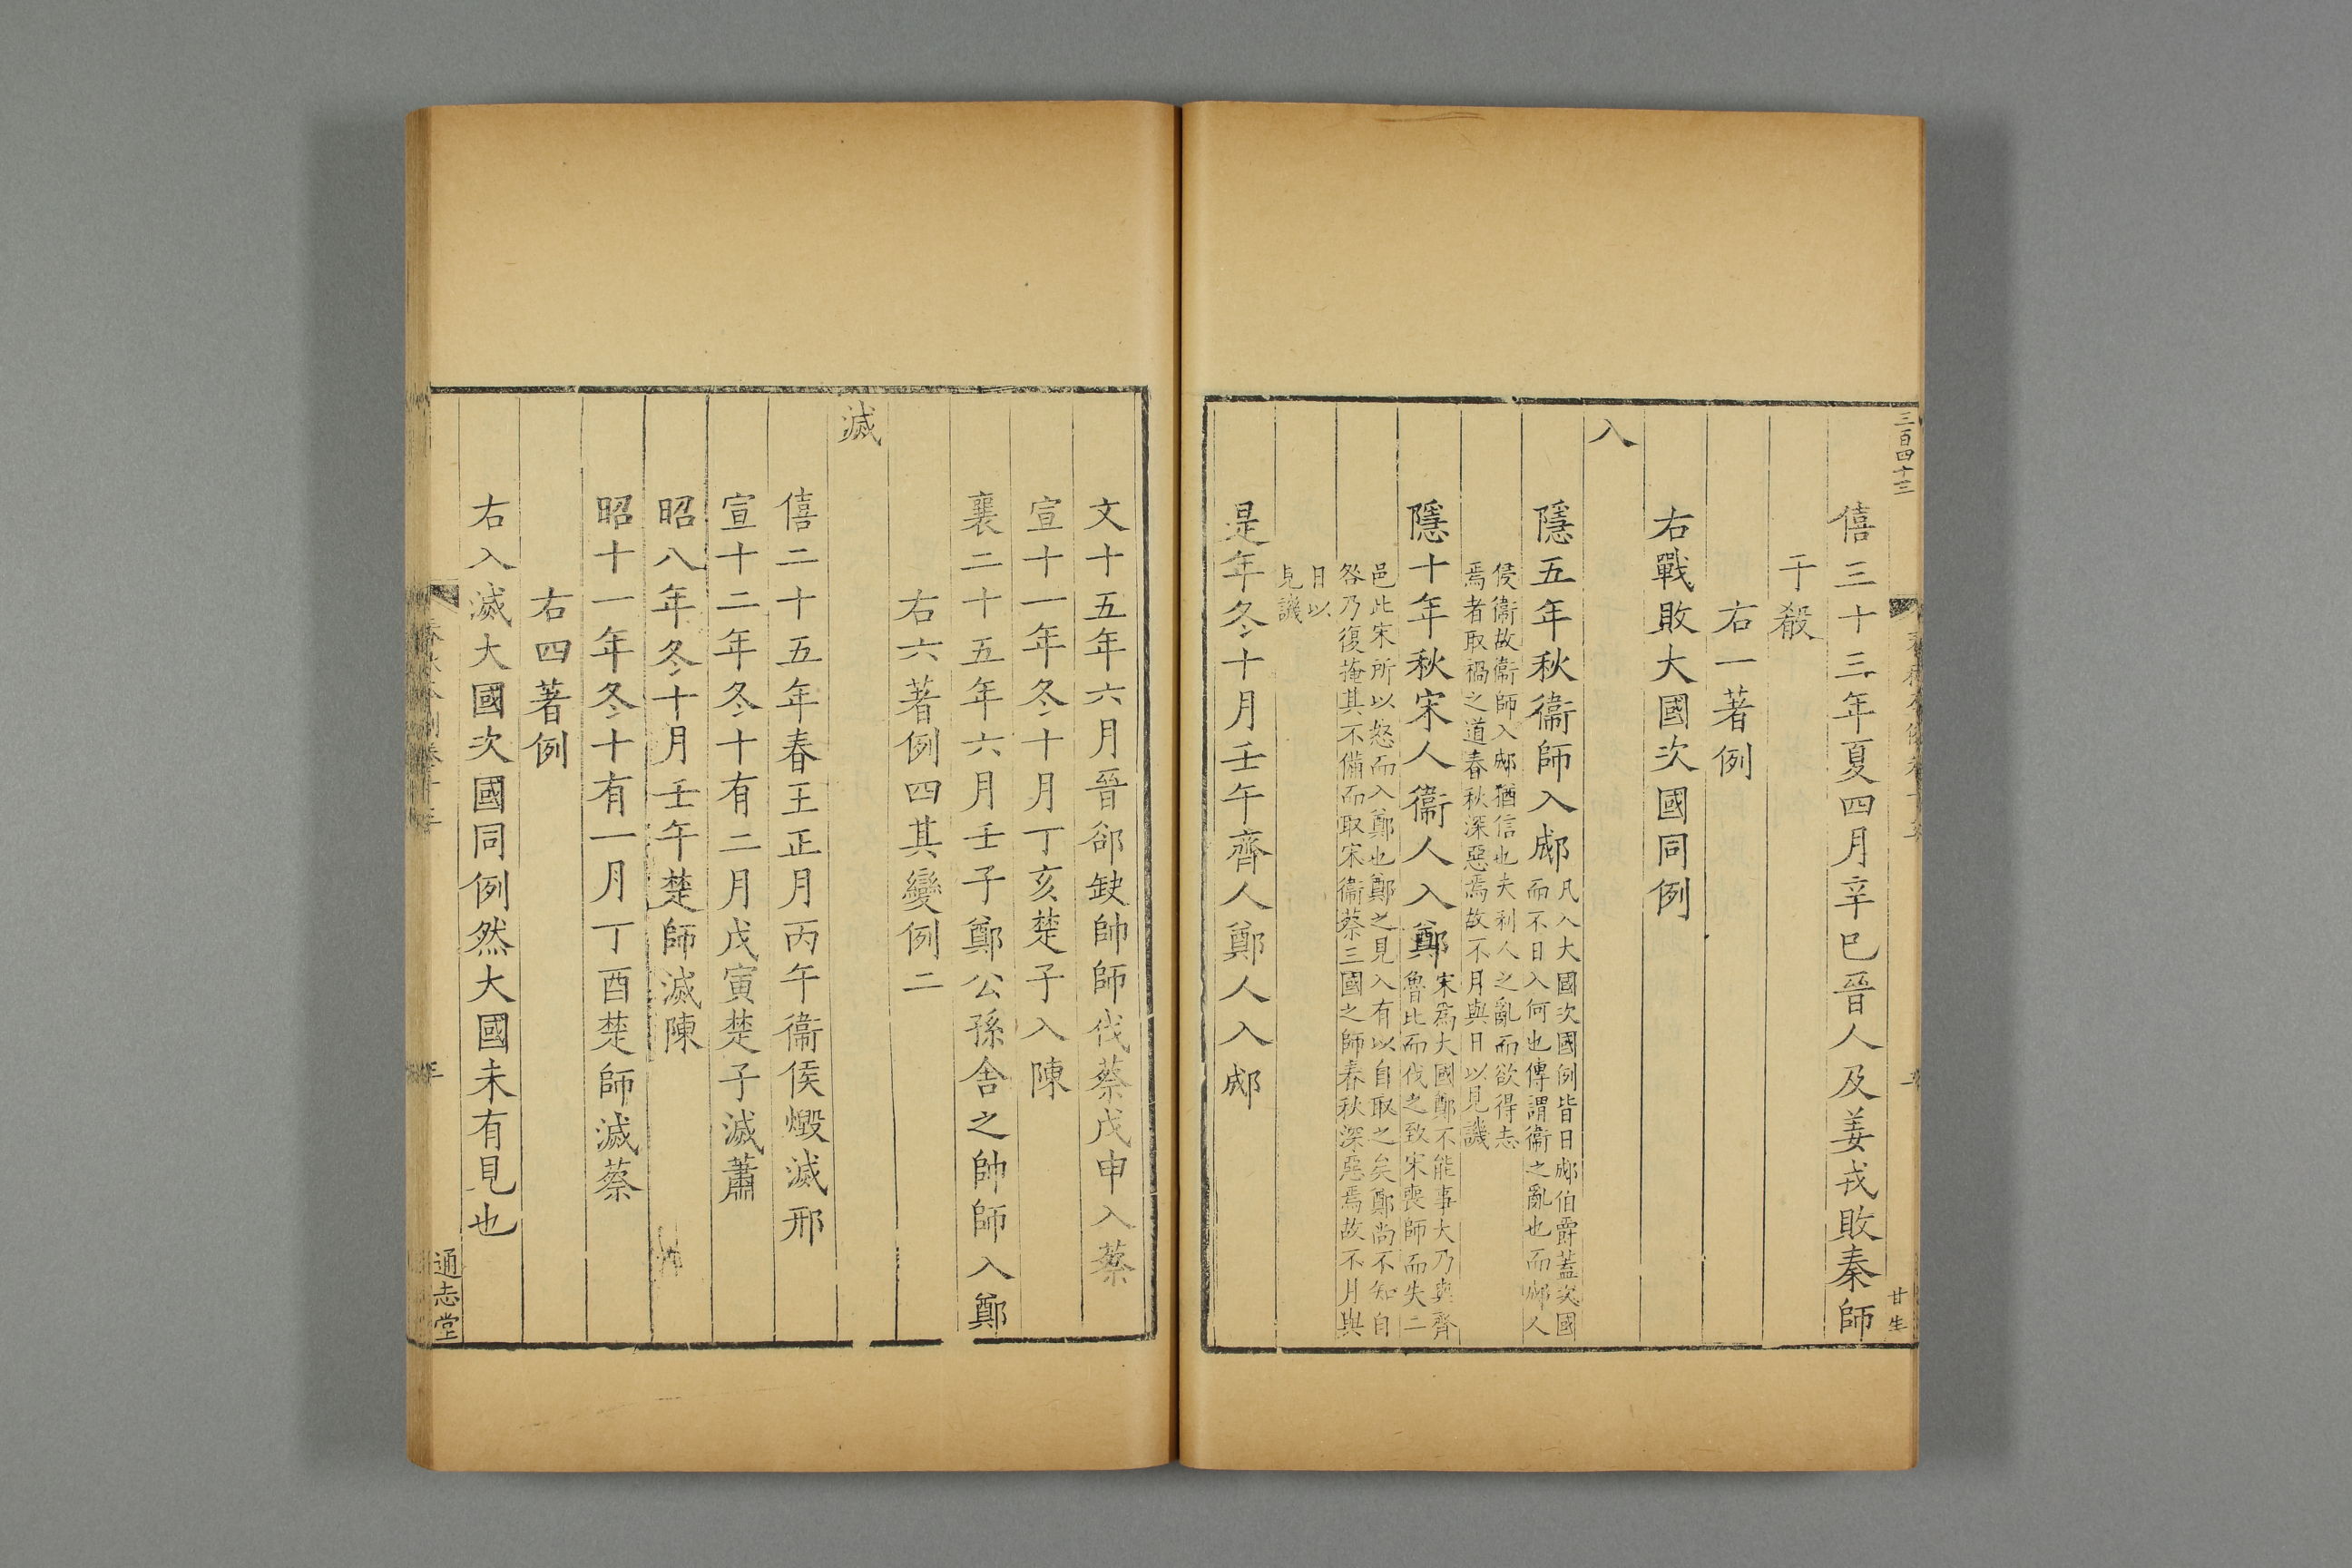 三百四十三
甘生
僖三十三年夏四月辛巳晉人及姜戎敗秦師
于殽
右一著例
右戰敗大國次國同例
入
隱五年秋衞師入郕
凡入大國次國例皆日郕伯爵蓋次國
而不日入何也傳謂衞之亂也而郕人
侵衞故衞師入郕猶信也夫利人之亂而欲得志
焉者取禍之道春秋深惡焉故不月與日以見譏
隱十年秋宋人衞人入鄭
宋爲大國鄭不能事大乃與齊
魯比而伐之致宋喪師而失二
邑此宋所以怒而入鄭也鄭之見入有以自取之矣鄭尚不知自
咎乃復掩其不備而取宋衞蔡三國之師春秋深惡焉故不月與
日以
見譏
是年冬十月壬午齊人鄭人入郕
文十五年六月晉郤缺帥師伐蔡戊申入蔡
宣十一年冬十月丁亥楚子入陳
襄二十五年六月壬子鄭公孫舍之帥師入鄭
右六著例四其變例二
滅
僖二十五年春王正月丙午衞侯燬滅邢
宣十二年冬十有二月戊寅楚子滅蕭
昭八年冬十月壬午楚師滅陳
昭十一年冬十有一月丁酉楚師滅蔡
右四著例
右入滅大國次國同例然大國未有見也
通志堂